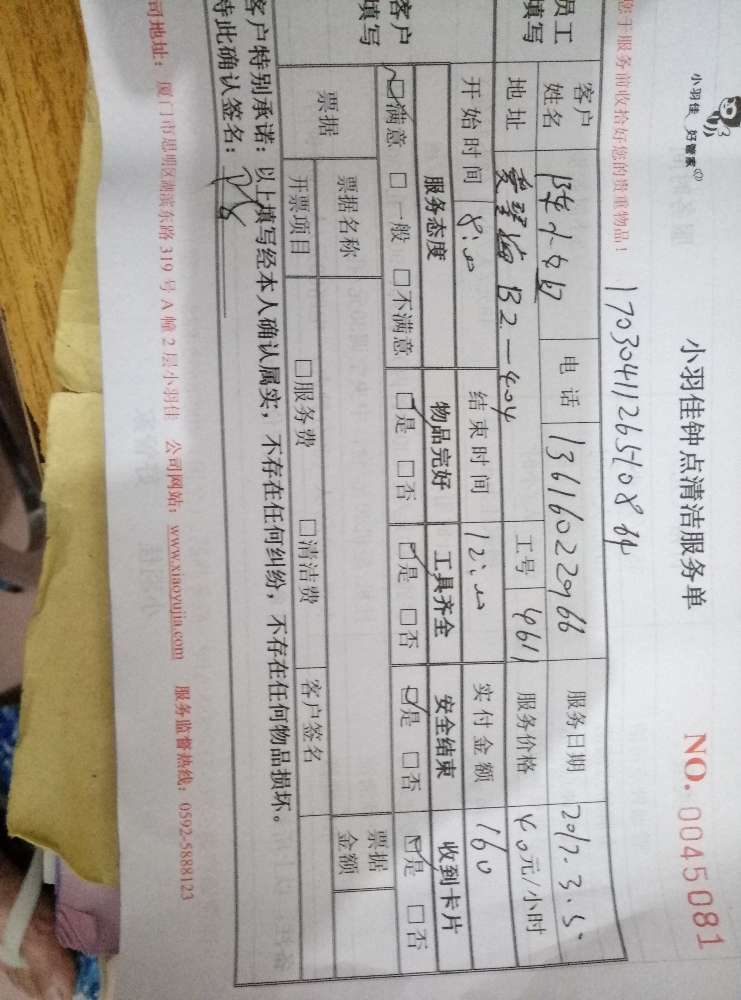 小羽佳 好管家
小羽佳钟点清洁服务单
NO. 0045081
您于服务前收拾好您的贵重物品！
员工填写
客户姓名
电话 13616022966
服务日期 2017.3.5.
地址
B2-404
工号 4611
服务价格 40元/小时
开始时间 8:00
结束时间 12:00
实付金额 160
客户填写
服务态度 物品完好 工具齐全 安全结束 收到卡片
☑满意 □一般 □不满意 ☑是 □否 ☑是 □否 ☑是 □否 ☑是 □否
票据 票据名称 票据金额
开票项目 □服务费 □清洁费 客户签名
客户特别承诺：以上填写经本人确认属实，不存在任何纠纷，不存在任何物品损坏。
特此确认签名：
司地址：厦门市思明区湖滨东路 319 号 A 幢 2 层小羽佳 公司网站：www.xiaoyujia.com 服务监督热线：0592-5888123